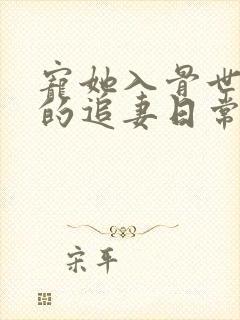 寵她入骨世
的追妻日常
宋平